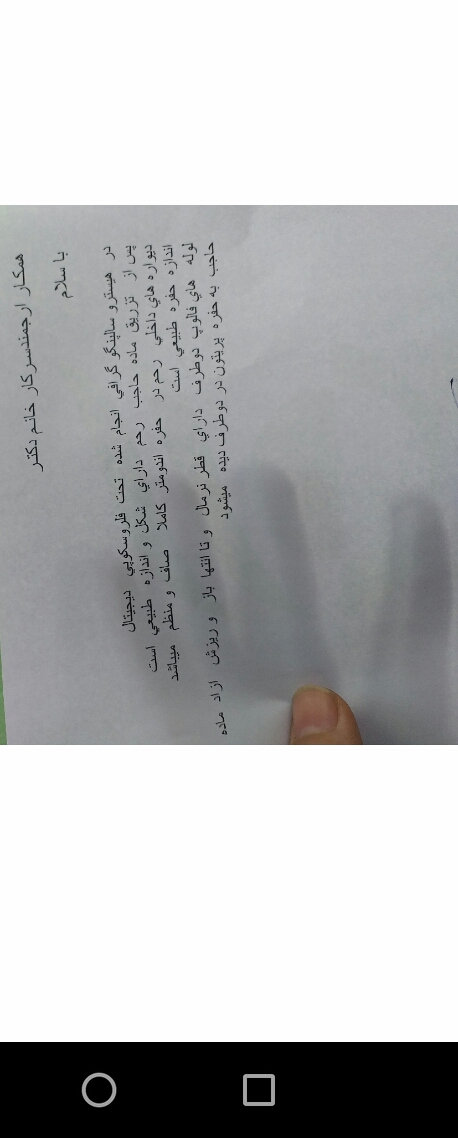 همكار ارجمندسركار خانم دكتر
با سلام
در هيسترو سالپنگو گرافي انجام شده تحت فلروسكوپي ديجيتال
پس از تزريق ماده حاجب رحم داراي شكل و اندازه طبيعي است
ديواره هاي داخلي رحم در حفره اندومتر كاملا صاف و منظم ميباشد
اندازه حفره طبيعي است
لوله هاي فالوپ دوطرف داراي قطر نرمال و تا انتها باز و ريزش ازاد ماده
حاجب به حفره پريتون در دوطرف ديده ميشود